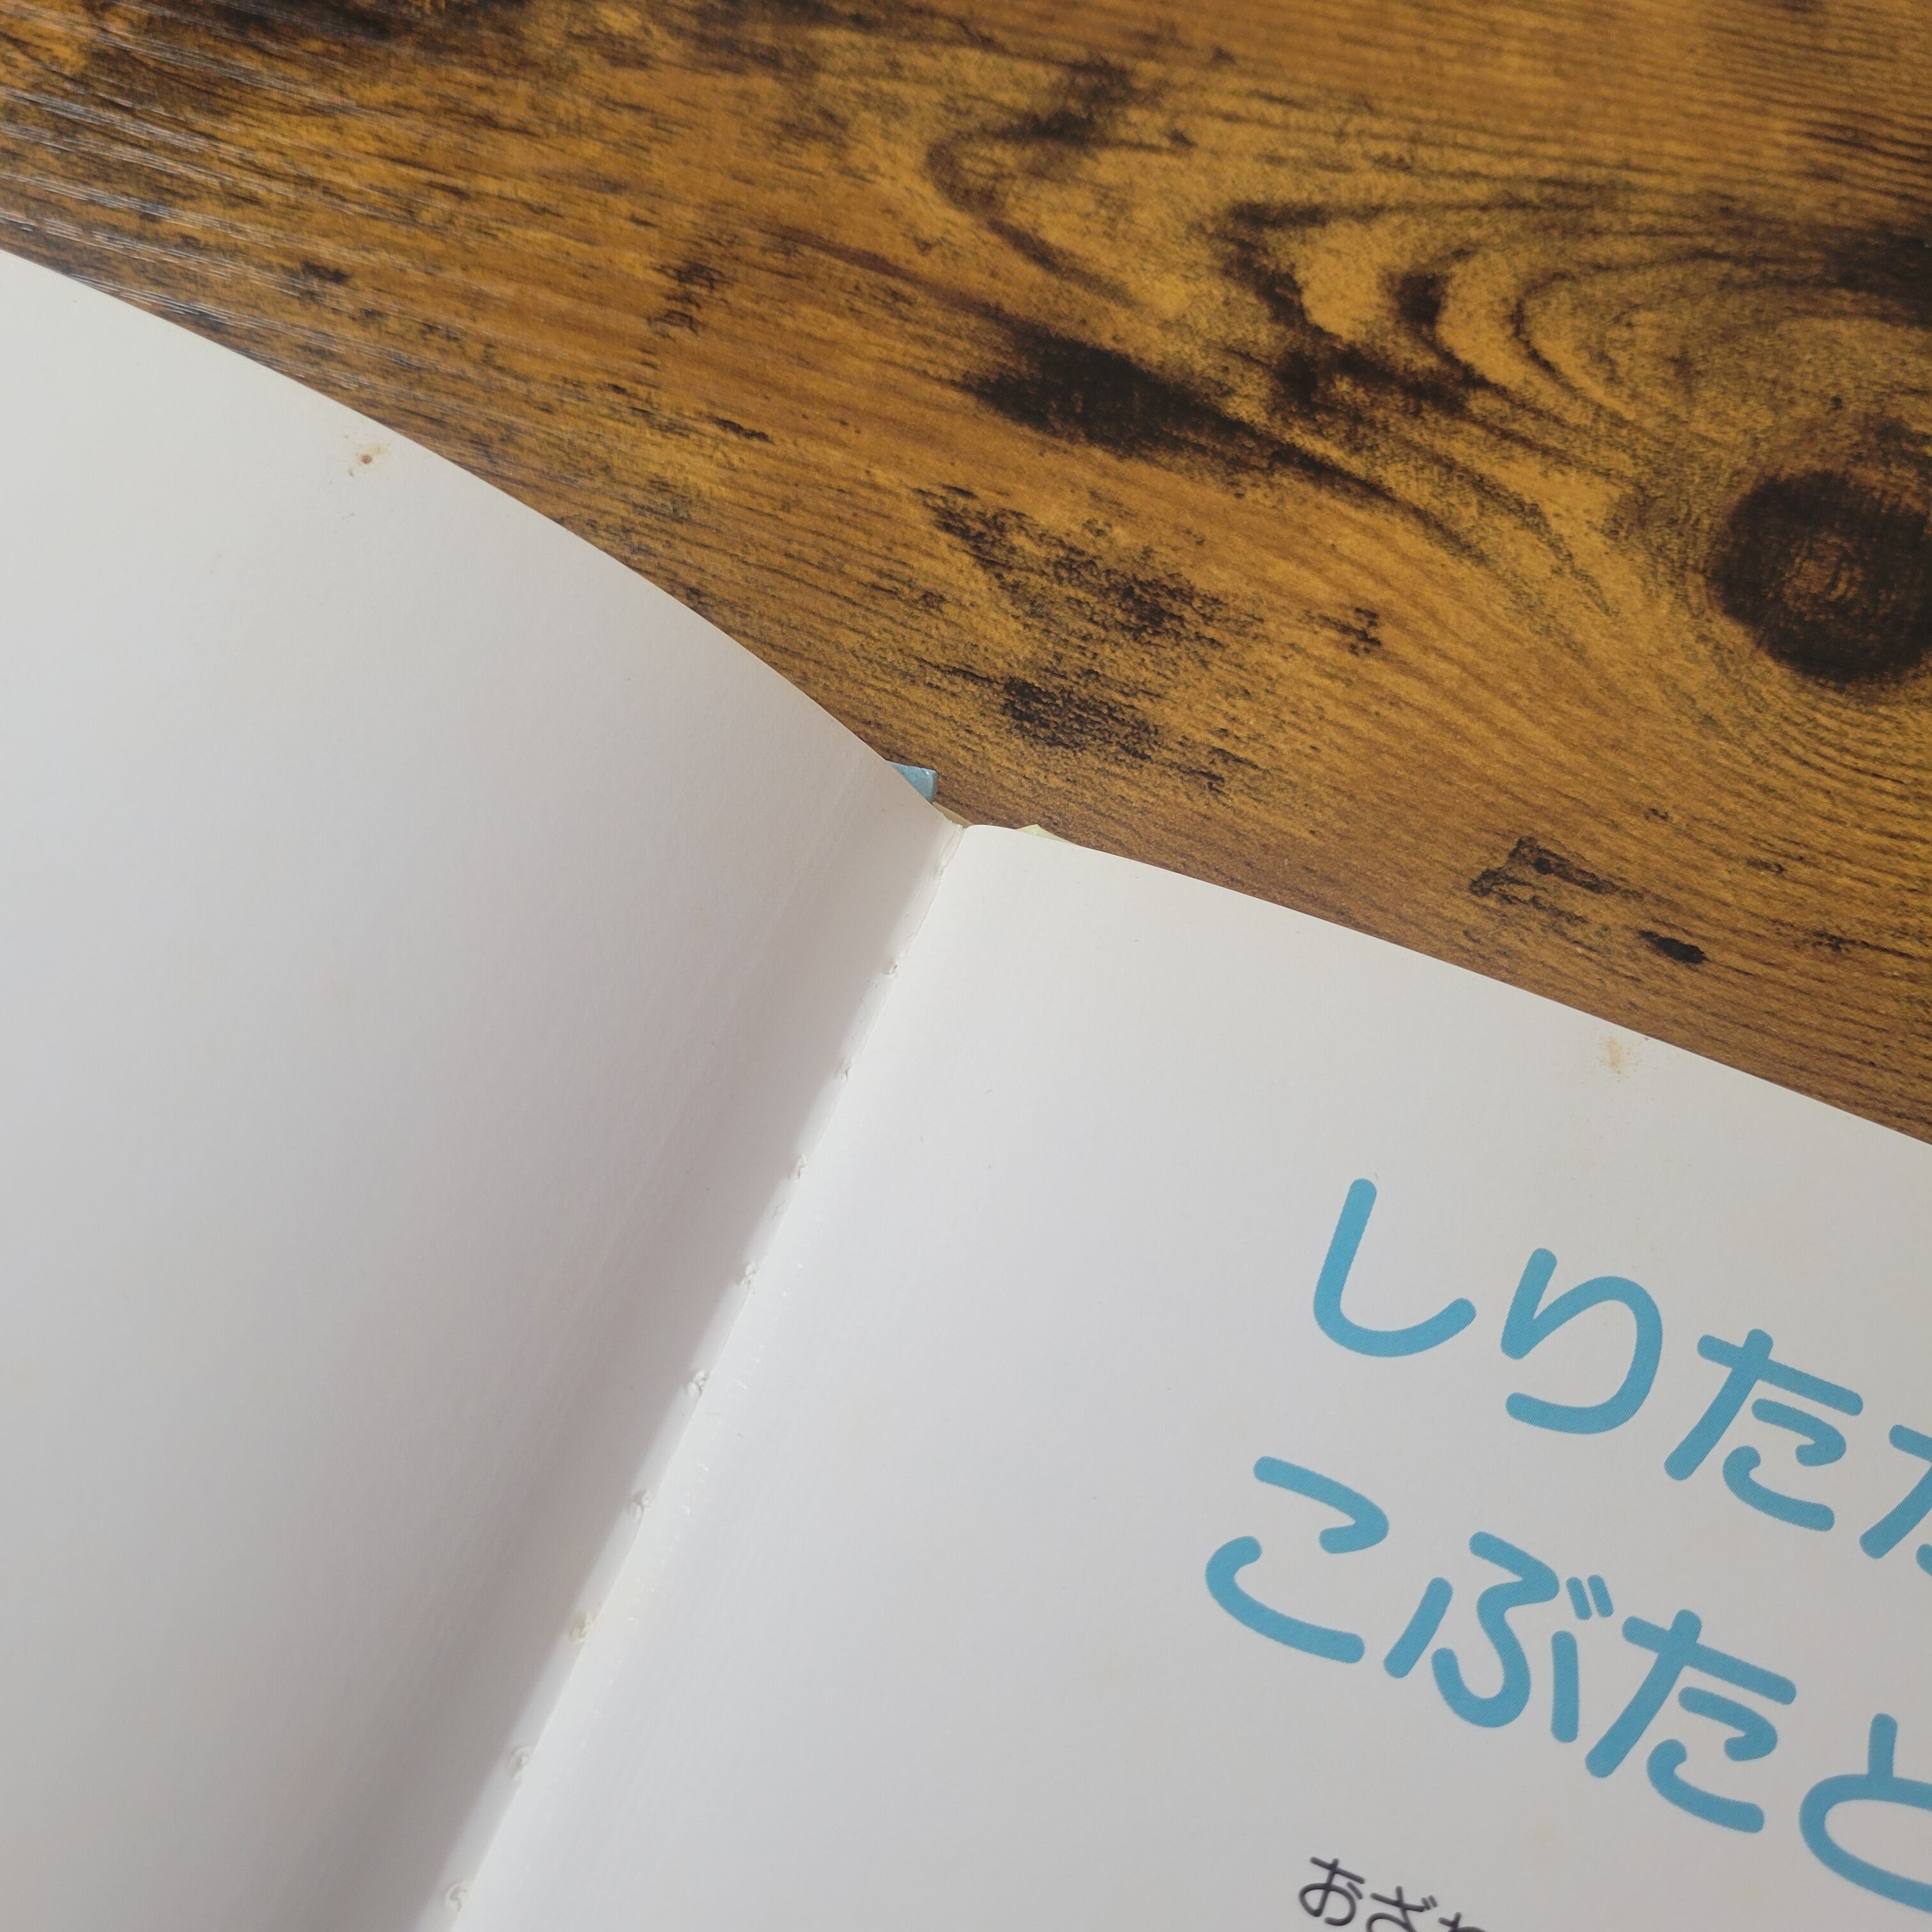 しりた
こぶたと
おざ